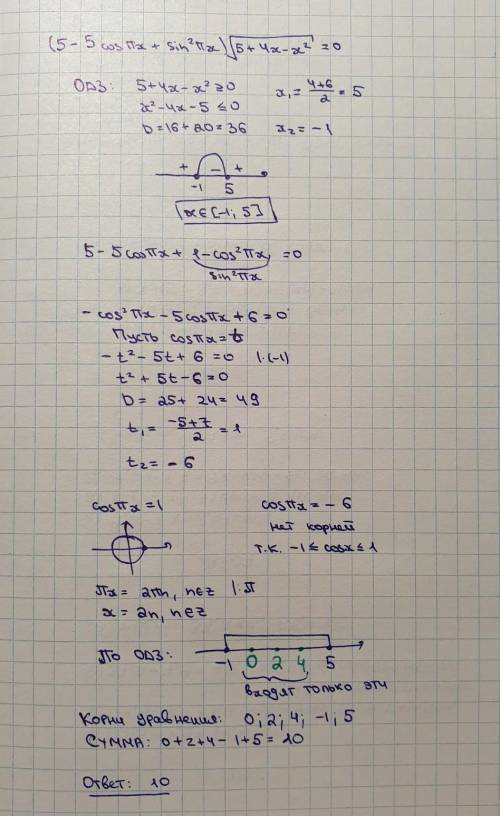 (5 - 5 cos πx + sin²πx)√5 + 4x - x² = 0
ОДЗ: 5 + 4x - x² ≥ 0 x₁ = (4+6)/2 = 5
x² - 4x - 5 ≤ 0
D = 16 + 20 = 36 x₂ = -1
+ - +
-1 5
x ∈ [-1; 5]
5 - 5cosπx + 1 - cos²πx = 0
sin²πx
- cos²πx - 5cosπx + 6 = 0
Пусть cosπx = t
- t² - 5t + 6 = 0 |·(-1)
t² + 5t - 6 = 0
D = 25 + 24 = 49
t₁ = (-5+7)/2 = 1
t₂ = - 6
cosπx = 1 cosπx = - 6
нет корней
т.к. -1 ≤ cosx ≤ 1
πx = 2πn, n∈z |:π
x = 2n, n∈z
По ОДЗ: -1 0 2 4 5
входят только эти
Корни уравнения: 0; 2; 4; -1; 5
Сумма: 0 + 2 + 4 - 1 + 5 = 10
Ответ: 10